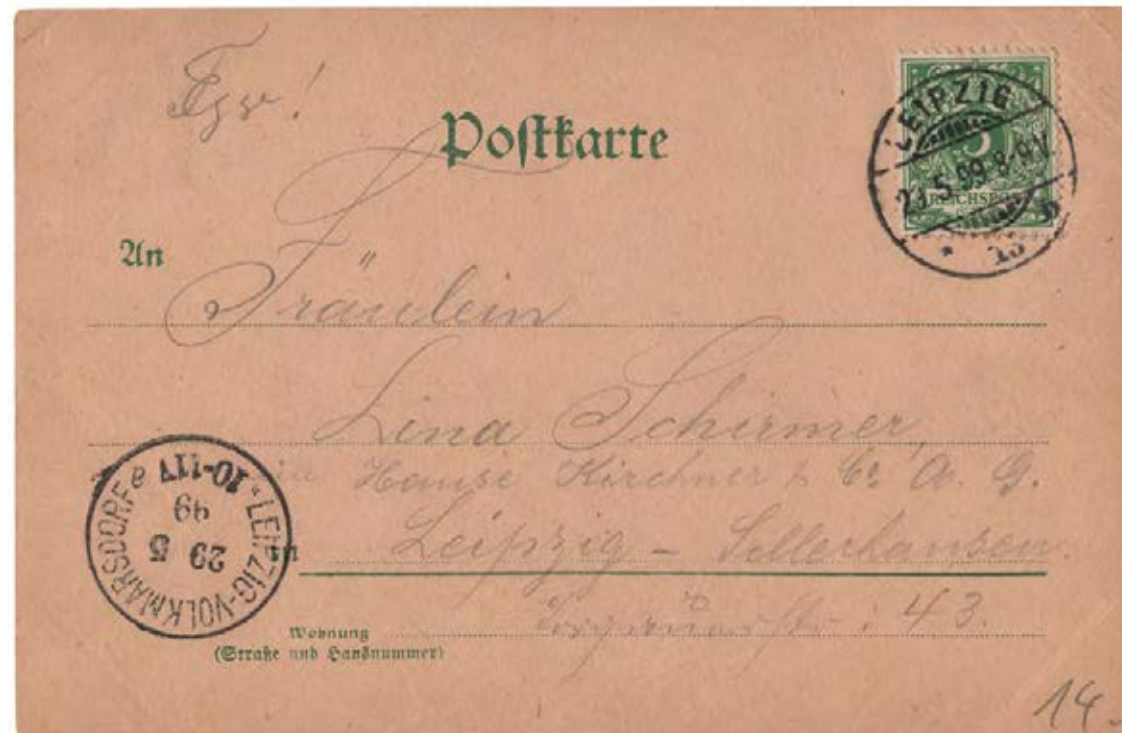 Postkarte
LEIPZIG
5.99.8-9V.
13
5
REICHSPOST
An
Fräulein
Lina Schirmer,
im Hause Kirchner & Co A. G.
Leipzig - Sellerhausen.
LEIPZIG-VOLKMARSDORF
29 5
99
10-11V
in
Wohnung
(Straße und Hausnummer)
Torgauerstr: 43.
14.